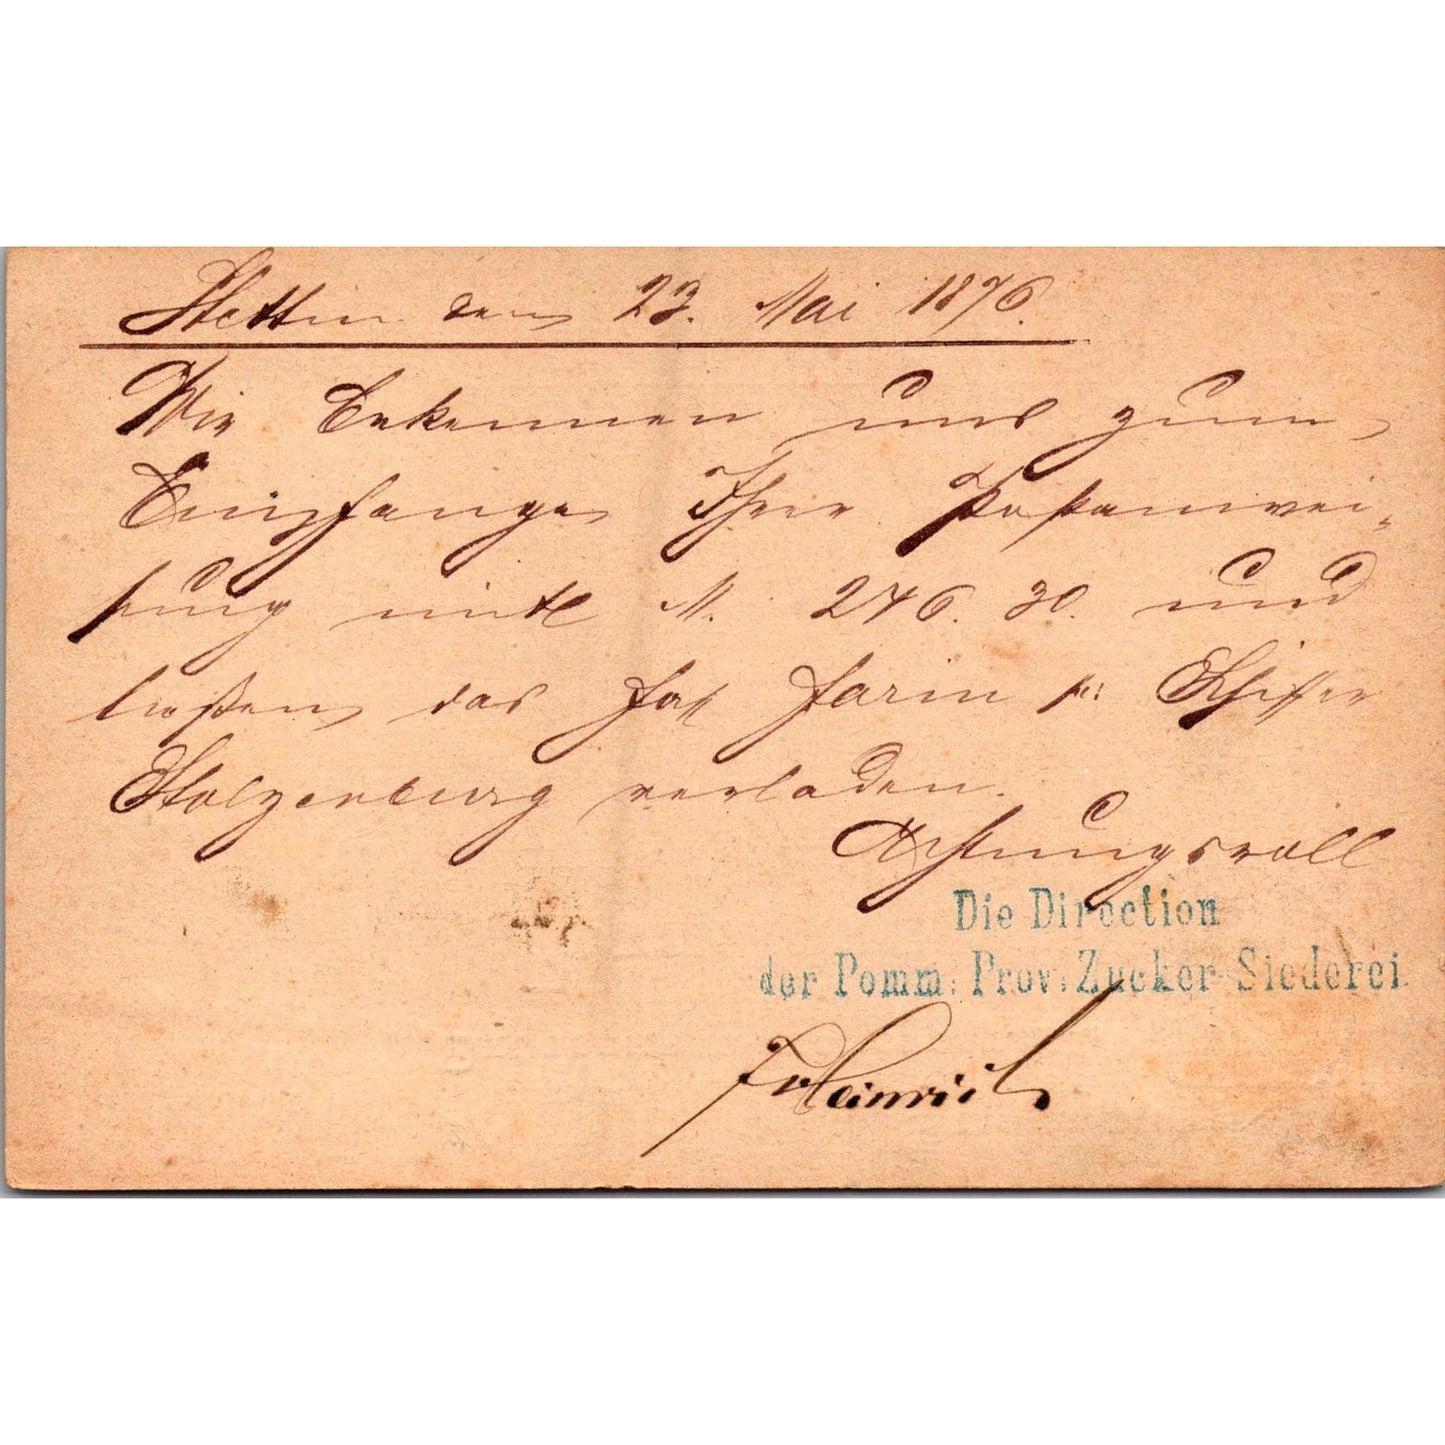 Stettin den 23. Mai 1876.
Wir bekennen uns zum
Empfange Ihrer Postanwei-
sung mit M. 246.30. und
ließen das Faß Farin pr Schiffer
Stolzenburg verladen.
Achtungsvoll
Die Direction
der Pomm. Prov. Zucker-Siederei.
Heinrich